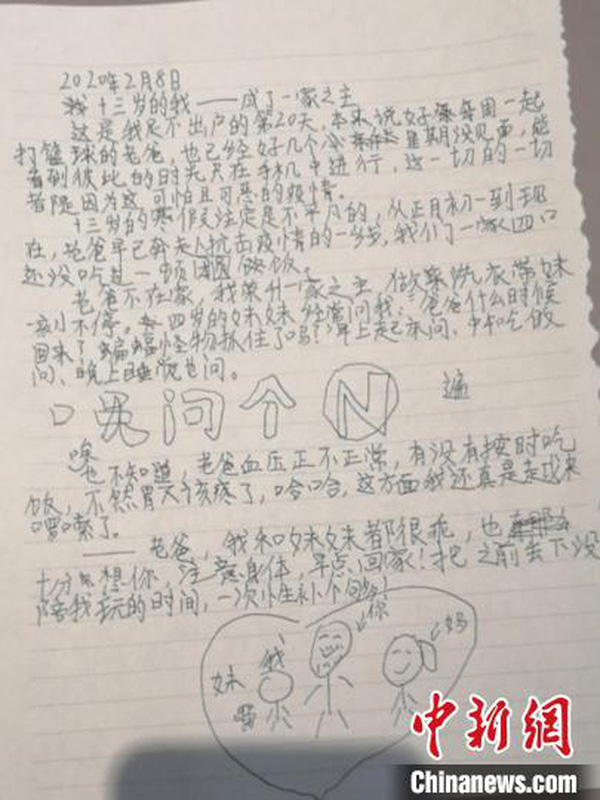 2020年2月8日
十三岁的我——成了一家之主
这是我足不出户的第20天，本来说好每周一起
打篮球的老爸，也已经好几个星期没见面，能
看到彼此的时光只在手机中进行，这一切的一切
都是因为这可怕且可恶的疫情。
十三岁的寒假注定是不平凡的，从正月初一到现
在，老爸早已奔走抗击疫情的一线，我们一家四口
还没吃过一顿团圆饭。
老爸不在家，我荣升一家之主，做菜洗衣带妹
一刻不停。四岁的妹妹经常问我：爸爸什么时候
回来？蝙蝠怪物抓住了吗？早上起床问、中午吃饭
问、晚上睡觉也问。
问个N 遍
唉
也不知道，老爸血压正不正常，有没有按时吃
饭，不然胃又该疼了，哈哈，这方面我还真是走过来
啰嗦了。
——老爸，我和妹妹都很乖，也
十分想你，注意身体，早点回家！把之前去下没
陪我玩的时间，一次性补个回的！
你
妹 我 妈
中新网
Chinanews.com